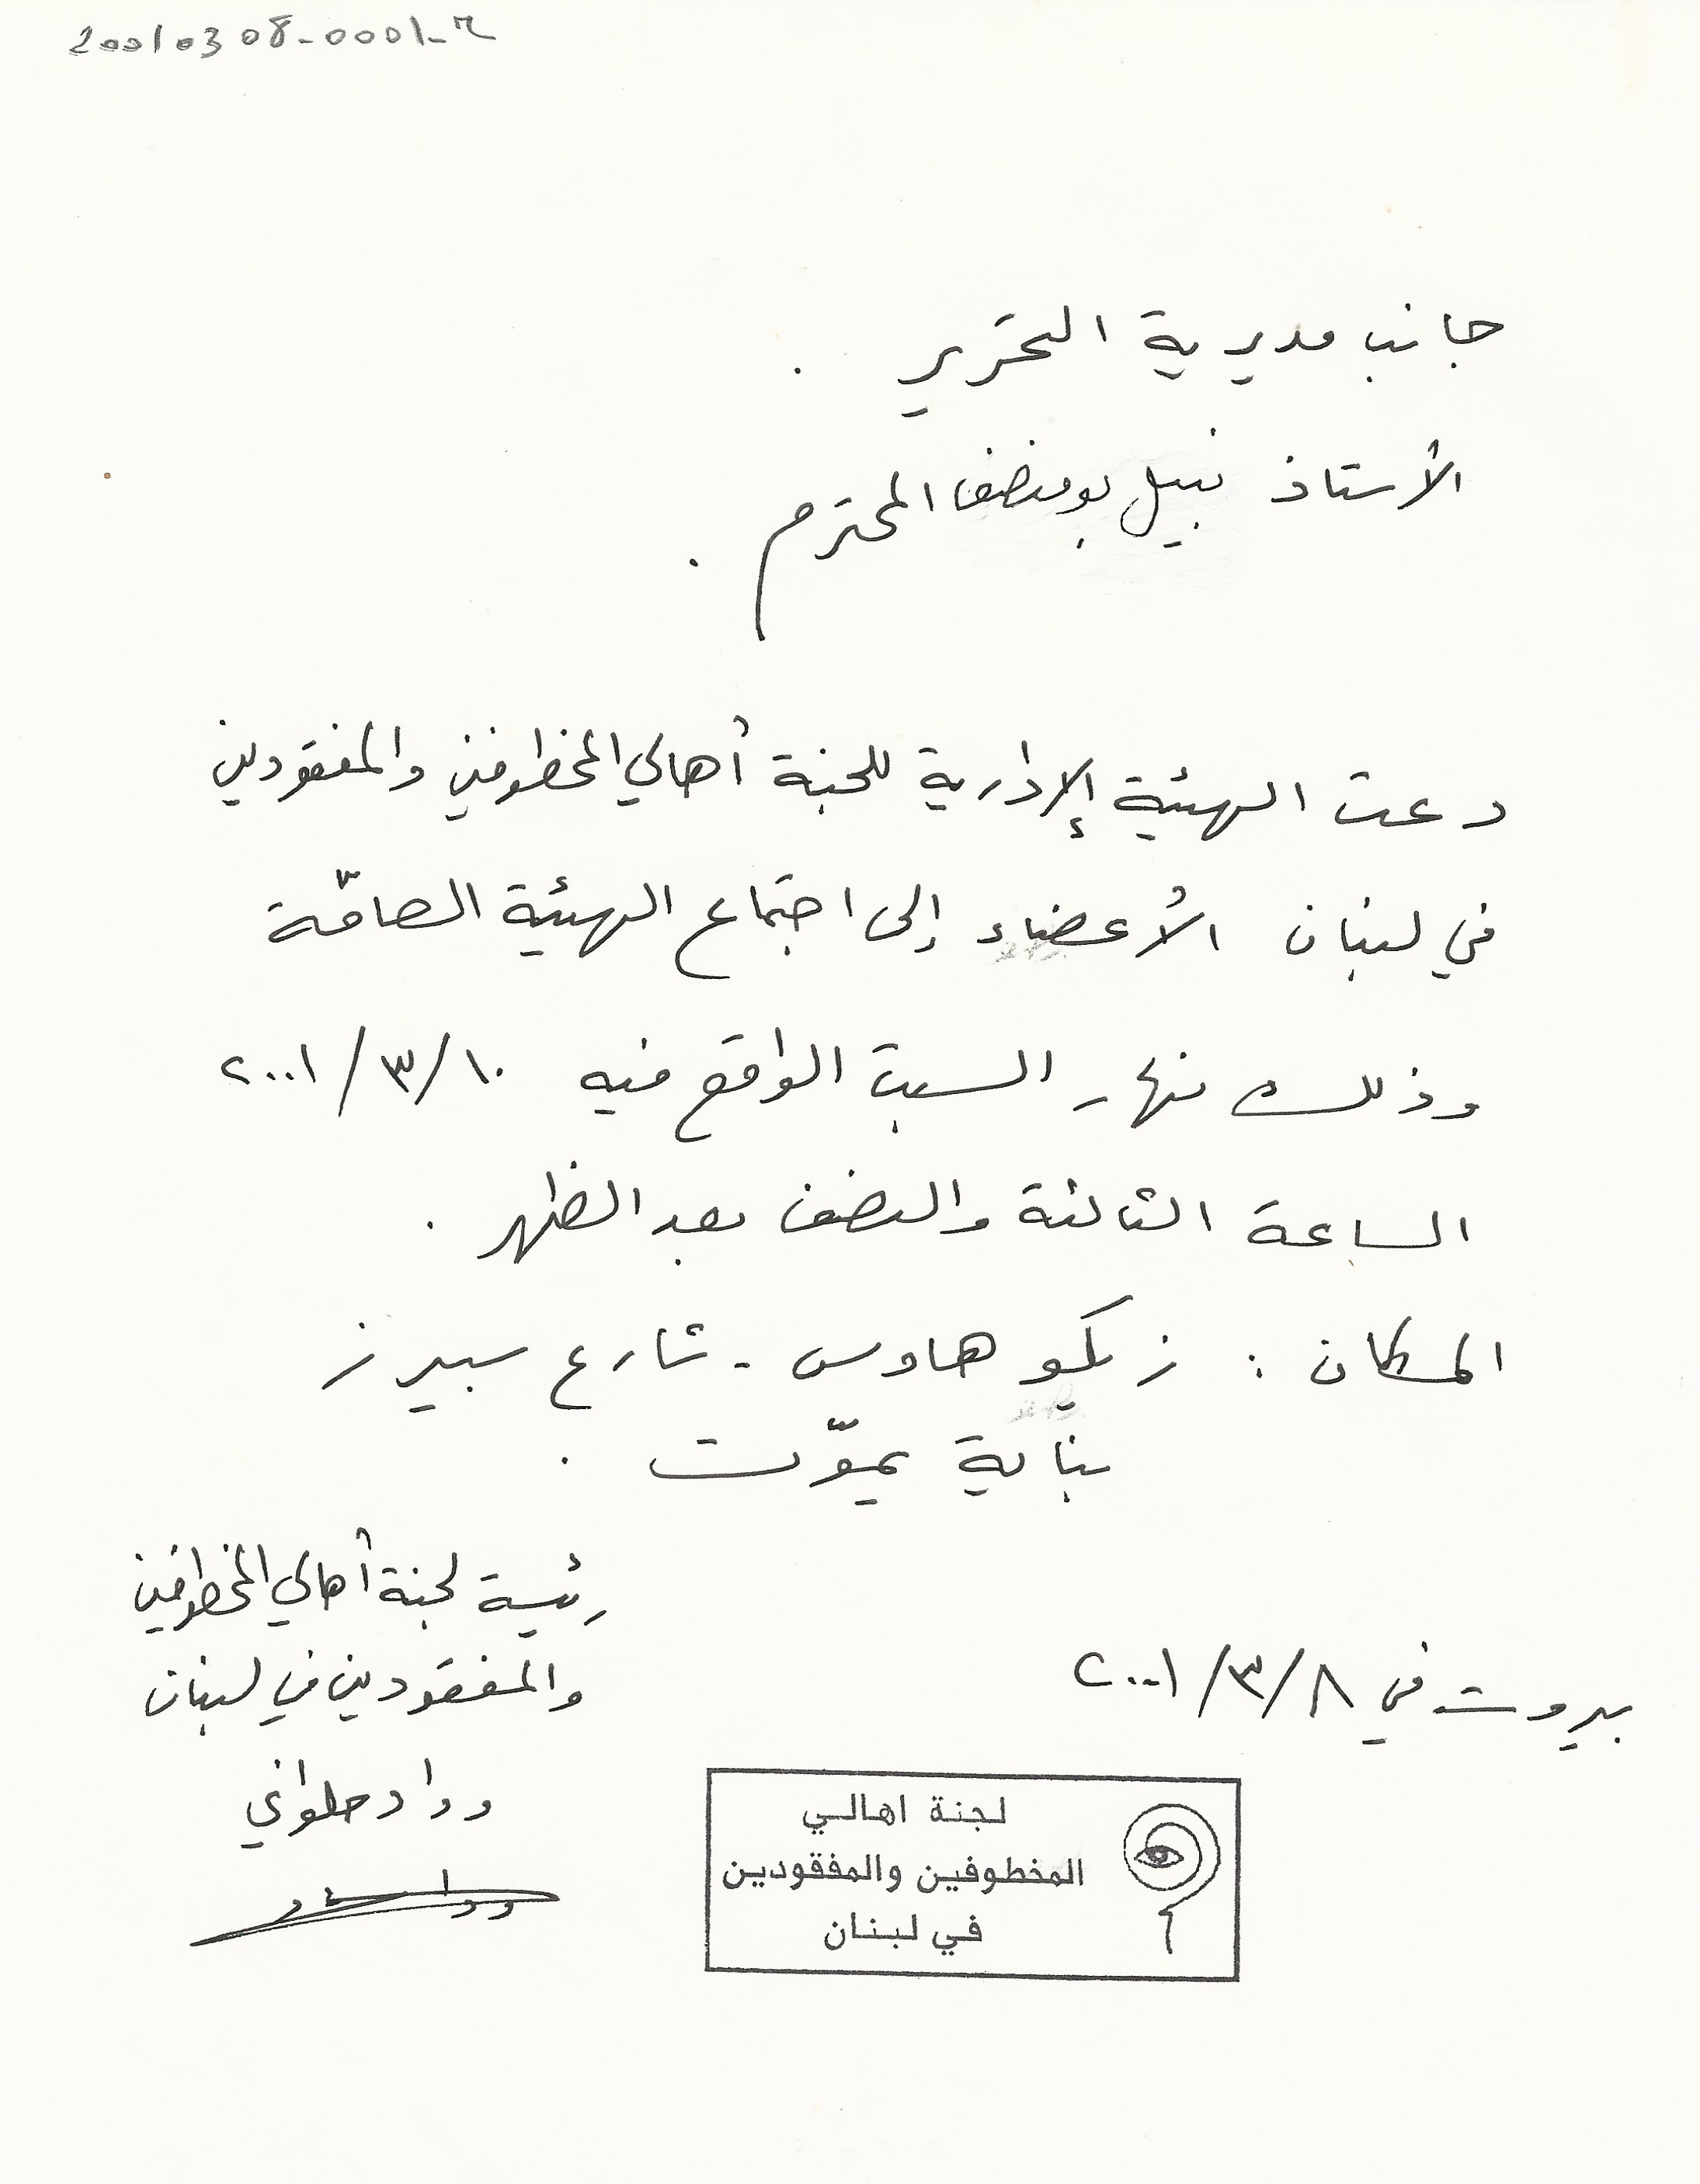 20010308-0001-2
جانب مديرية التحرير .
الأستاذ نبيل بومنصف المحترم .
دعت الهيئة الإدارية للجنة أهالي المخطوفين والمفقودين
في لبنان الأعضاء إلى اجتماع الهيئة العامّة
وذلك نهار السبت الواقع فيه ١٠/٣/٢٠٠١
الساعة الثالثة والنصف بعد الظهر .
المكان : زيكو هاوس - شارع سبيرز
بناية يموّت .
رئيسة لجنة أهالي المخطوفين
والمفقودين في لبنان
بيروت في ٨/٣/٢٠٠١
وداد حلواني
وداد
لجنة اهالي
المخطوفين والمفقودين
في لبنان